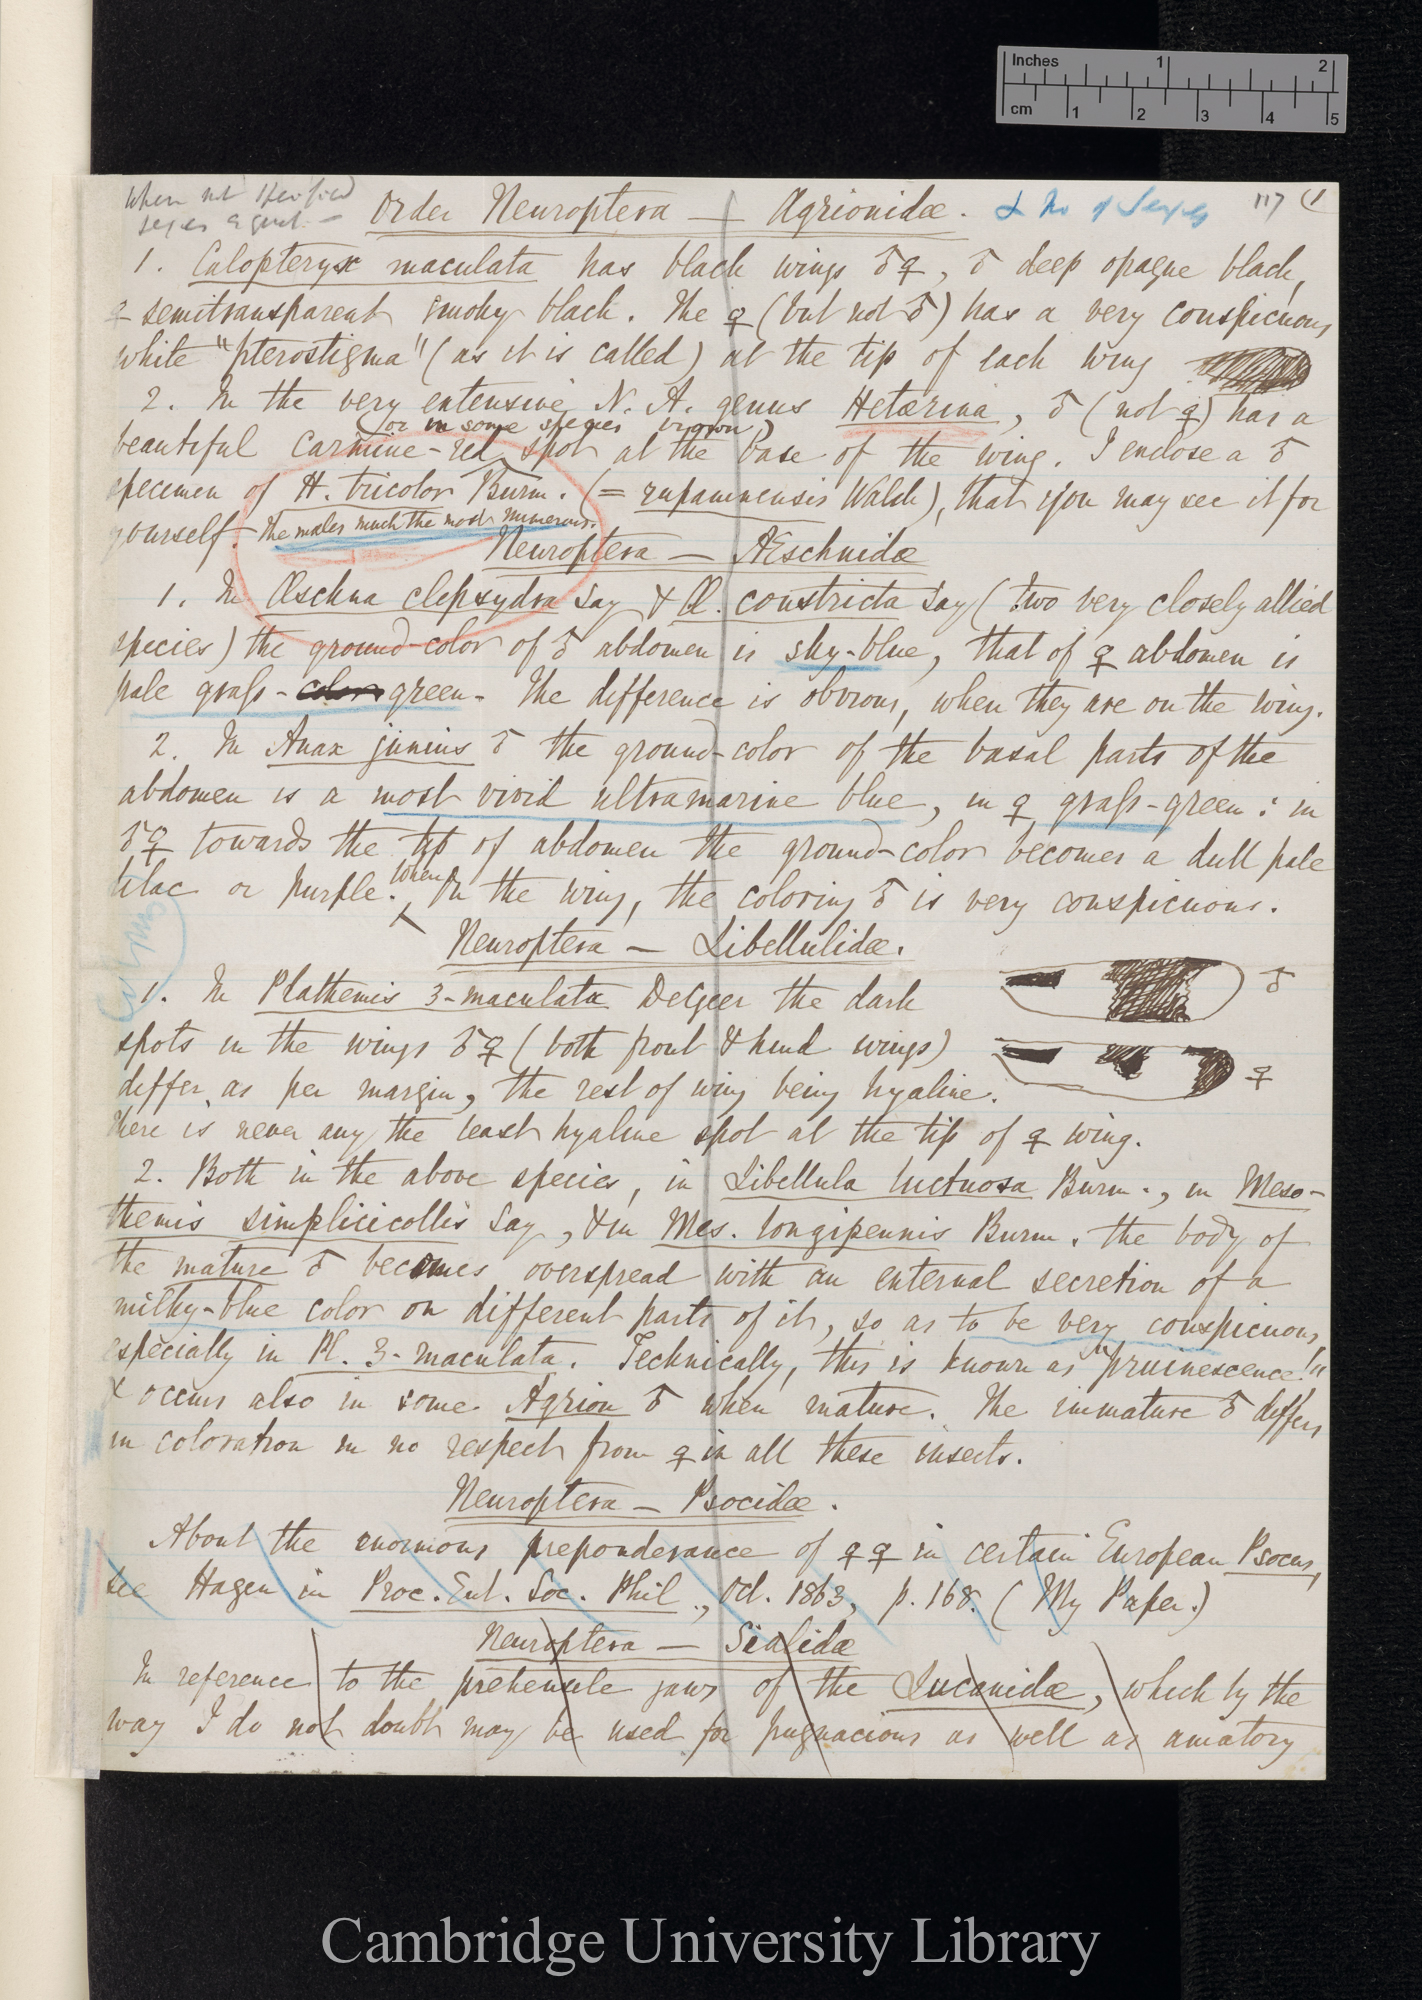 Inches 1 2
cm 1 2 3 4 5
When not specified
sexes equal —
Order Neuroptera — Agrionidæ.
& No of Sexes
117 (1
1. Calopteryx maculata has black wings ♂♀, ♂ deep opaque black,
♀ semitransparent smoky black. The ♀ (but not ♂) has a very conspicuous
white "pterostigma" (as it is called) at the tip of each wing
2. In the very extensive N. A. genus Hetærina, ♂ (not ♀) has a
(or in some species brown)
beautiful carmine-red spot at the base of the wing. I enclose a ♂
specimen of H. tricolor Burm. (= rupamnensis Walsh), that you may see it for
yourself. The males much the most numerous.
Neuroptera — Æschnidæ
1. In Æschna clepsydra Say & Æ. constricta Say (two very closely allied
species) the ground-color of ♂ abdomen is sky-blue, that of ♀ abdomen is
pale grass-color green. The difference is obvious, when they are on the wing.
2. In Anax junius ♂ the ground-color of the basal parts of the
abdomen is a most vivid ultramarine blue, in ♀ grass-green: in
♂♀ towards the tip of abdomen the ground-color becomes a dull pale
lilac or purple. When On the wing, the coloring ♂ is very conspicuous.
Neuroptera — Libellulidæ.
1. In Plathemis 3-maculata DeGeer the dark
♂
spots in the wings ♂♀ (both front & hind wings)
differ as per margin, the rest of wing being hyaline.
♀
There is never any the least hyaline spot at the tip of ♀ wing.
2. Both in the above species, in Libellula luctuosa Burm., in Meso-
themis simplicicollis Say, & in Mes. longipennis Burm. the body of
the mature ♂ becomes overspread with an external secretion of a
milky-blue color on different parts of it, so as to be very conspicuous,
especially in Pl. 3-maculata. Technically, this is known as "pruinescence!"
& occurs also in some Agrion ♂ when mature. The immature ♂ differs
in coloration in no respect from ♀ in all these insects.
Neuroptera — Psocidæ.
About the enormous preponderance of ♀♀ in certain European Psocus,
see Hagen in Proc. Ent. Soc. Phil., Oct. 1863, p. 168. (My Paper.)
Neuroptera — Sialidæ
In reference to the prehensile jaws of the Lucanidæ, which by the
way I do not doubt may be used for pugnacious as well as amatory
Cambridge University Library